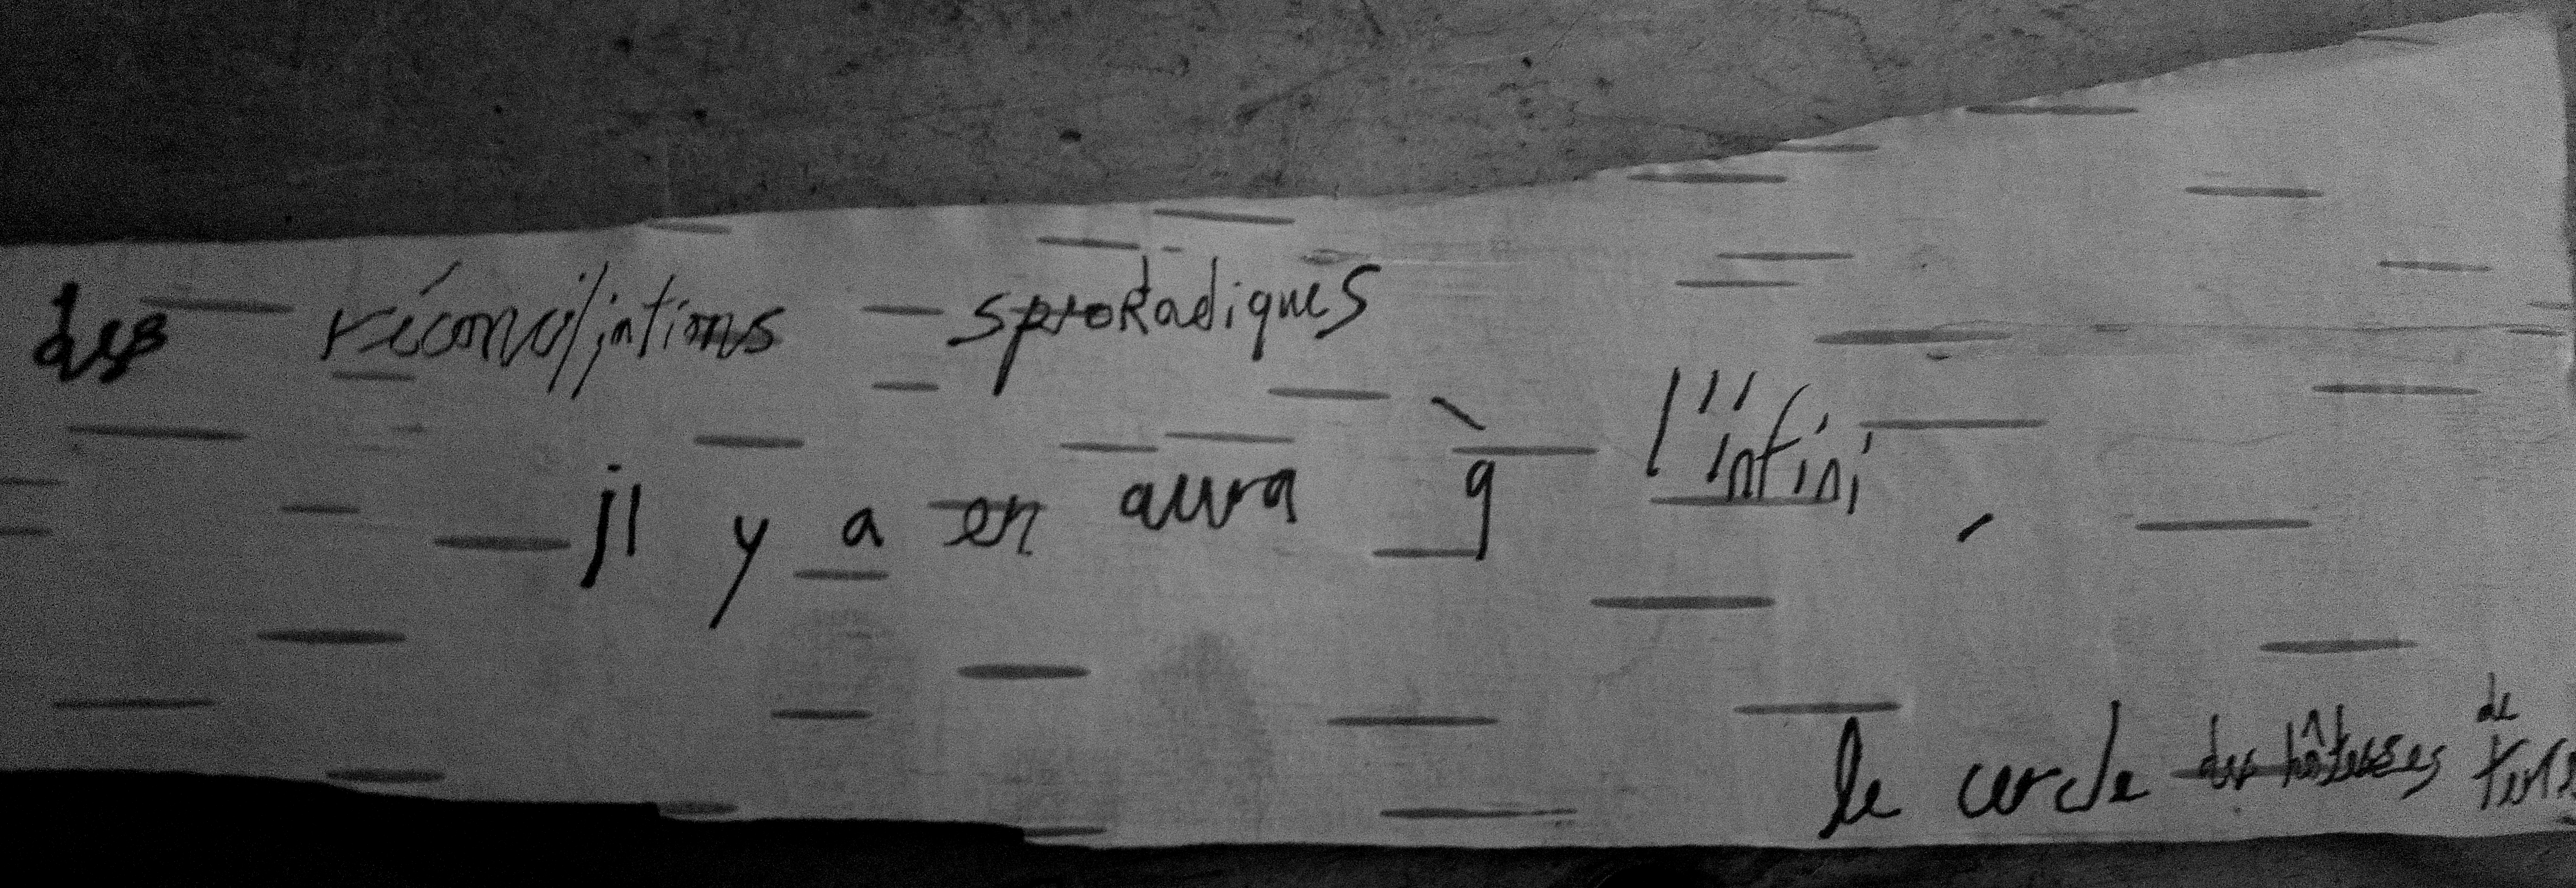 des réconciliations sporadiques
il y a en aura à l'infini,
le cercle des hôtesses de